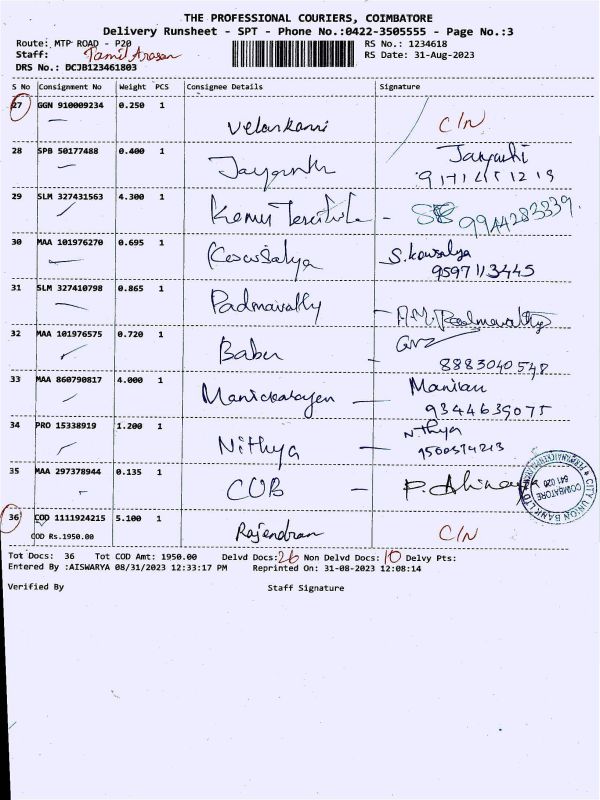 THE PROFESSIONAL COURIERS, COIMBATORE
Delivery Runsheet - SPT - Phone No.:0422-3505555 - Page No.:3
Route: MTP ROAD - P20 RS No.: 1234618
Staff: Tamil Arasan RS Date: 31-Aug-2023
DRS No.: DCJB123461803
S No Consignment No Weight PCS Consignee Details Signature
27 GGN 910009234 0.250 1 Velankanni C/N
28 SPB 50177488 0.400 1 Jayanth
29 SLM 327431563 4.300 1 9944283839
30 MAA 101976270 0.695 1 Kowsalya S.kowsalya
9597113445
31 SLM 327410798 0.865 1 Padmavathy
32 MAA 101976575 0.720 1 Babu
8883040548
33 MAA 860790817 4.000 1 Manickarayen
9344639075
34 PRO 15338919 1.200 1 Nithya Nithya
35 MAA 297378944 0.135 1 CUB P. Abinaya
CITY UNION BANK LTD
COIMBATORE
641 020
36 COD 1111924215 5.100 1 Rajendran C/N
COD Rs.1950.00
Tot Docs: 36 Tot COD Amt: 1950.00 Delvd Docs: 26 Non Delvd Docs: 10 Delvy Pts:
Entered By :AISWARYA 08/31/2023 12:33:17 PM Reprinted On: 31-08-2023 12:08:14
Verified By Staff Signature